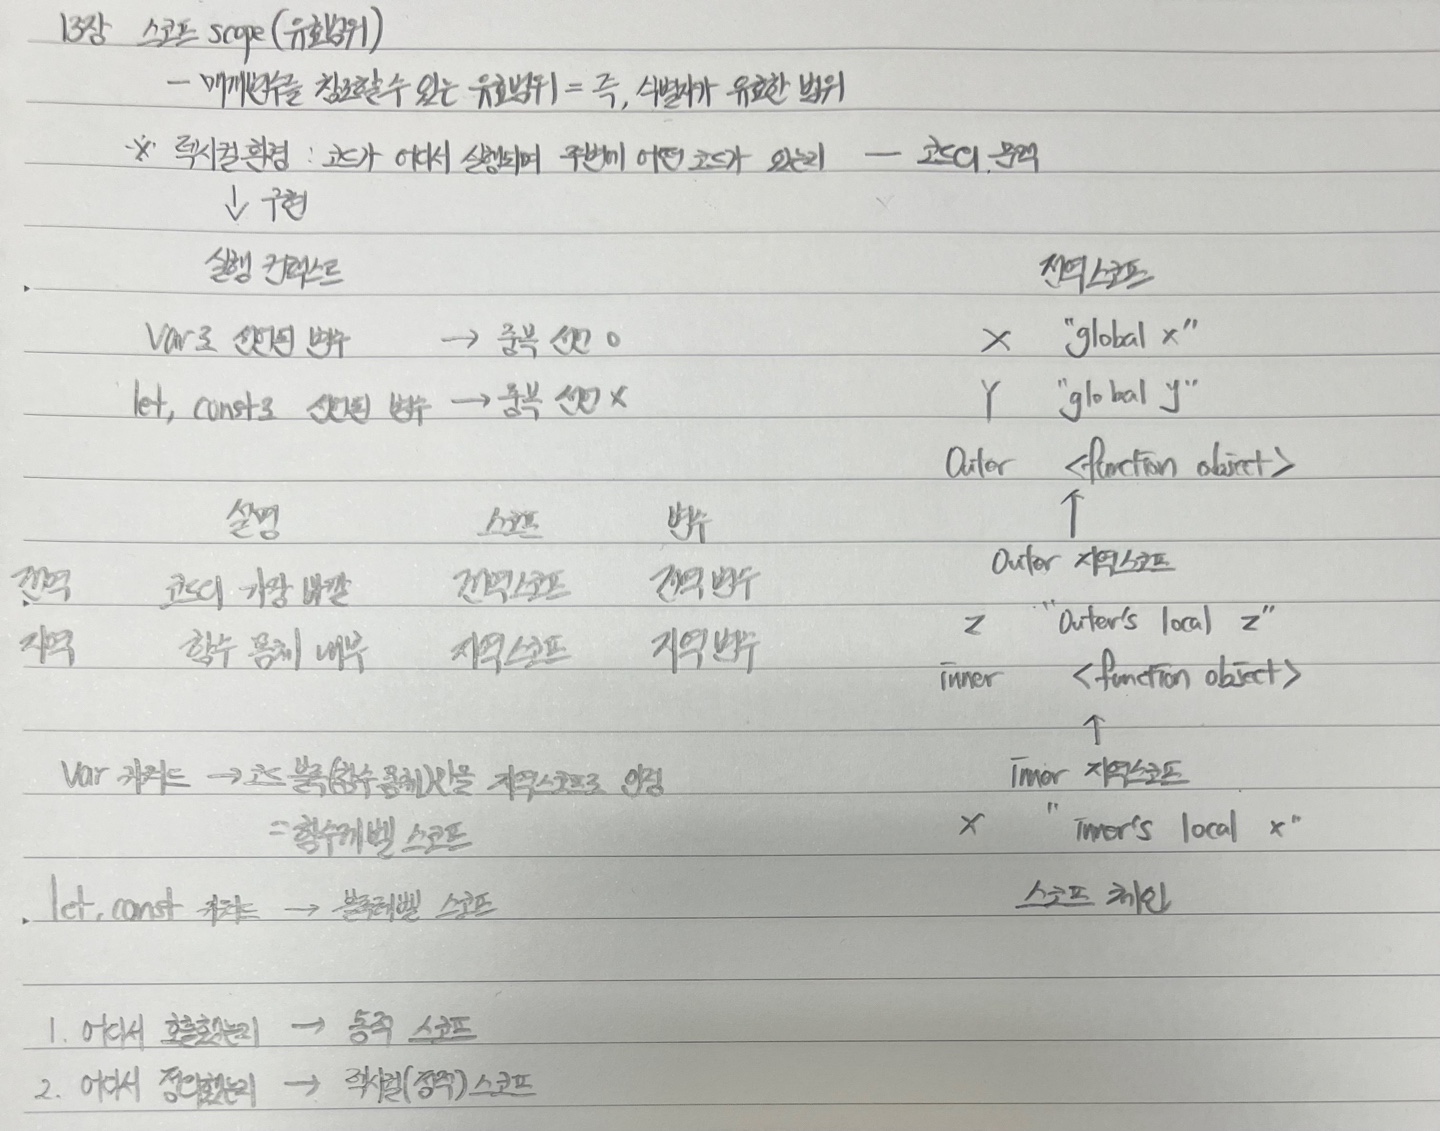 13장 스코프 scope (유효범위)
- 매개변수를 참조할 수 있는 유효범위 = 즉, 식별자가 유효한 범위
※ 렉시컬 환경 : 코드가 어디서 실행되며 주변에 어떤 코드가 있는지 — 코드의 문맥
↓ 구현
실행 컨텍스트
var로 선언된 변수 → 중복 선언 O
let, const로 선언된 변수 → 중복 선언 X
설명 스코프 변수
전역 코드의 가장 바깥 전역스코프 전역 변수
지역 함수 몸체 내부 지역스코프 지역 변수
var 키워드 → 코드 블록(함수 몸체)만을 지역스코프로 인정
= 함수레벨 스코프
let, const 키워드 → 블록레벨 스코프
1. 어디서 호출했는지 → 동적 스코프
2. 어디서 정의했는지 → 렉시컬(정적) 스코프
전역스코프
X "global x"
Y "global y"
Outer <function object>
↑
Outer 지역스코프
z "Outer's local z"
inner <function object>
↑
inner 지역스코프
X "inner's local x"
스코프 체인